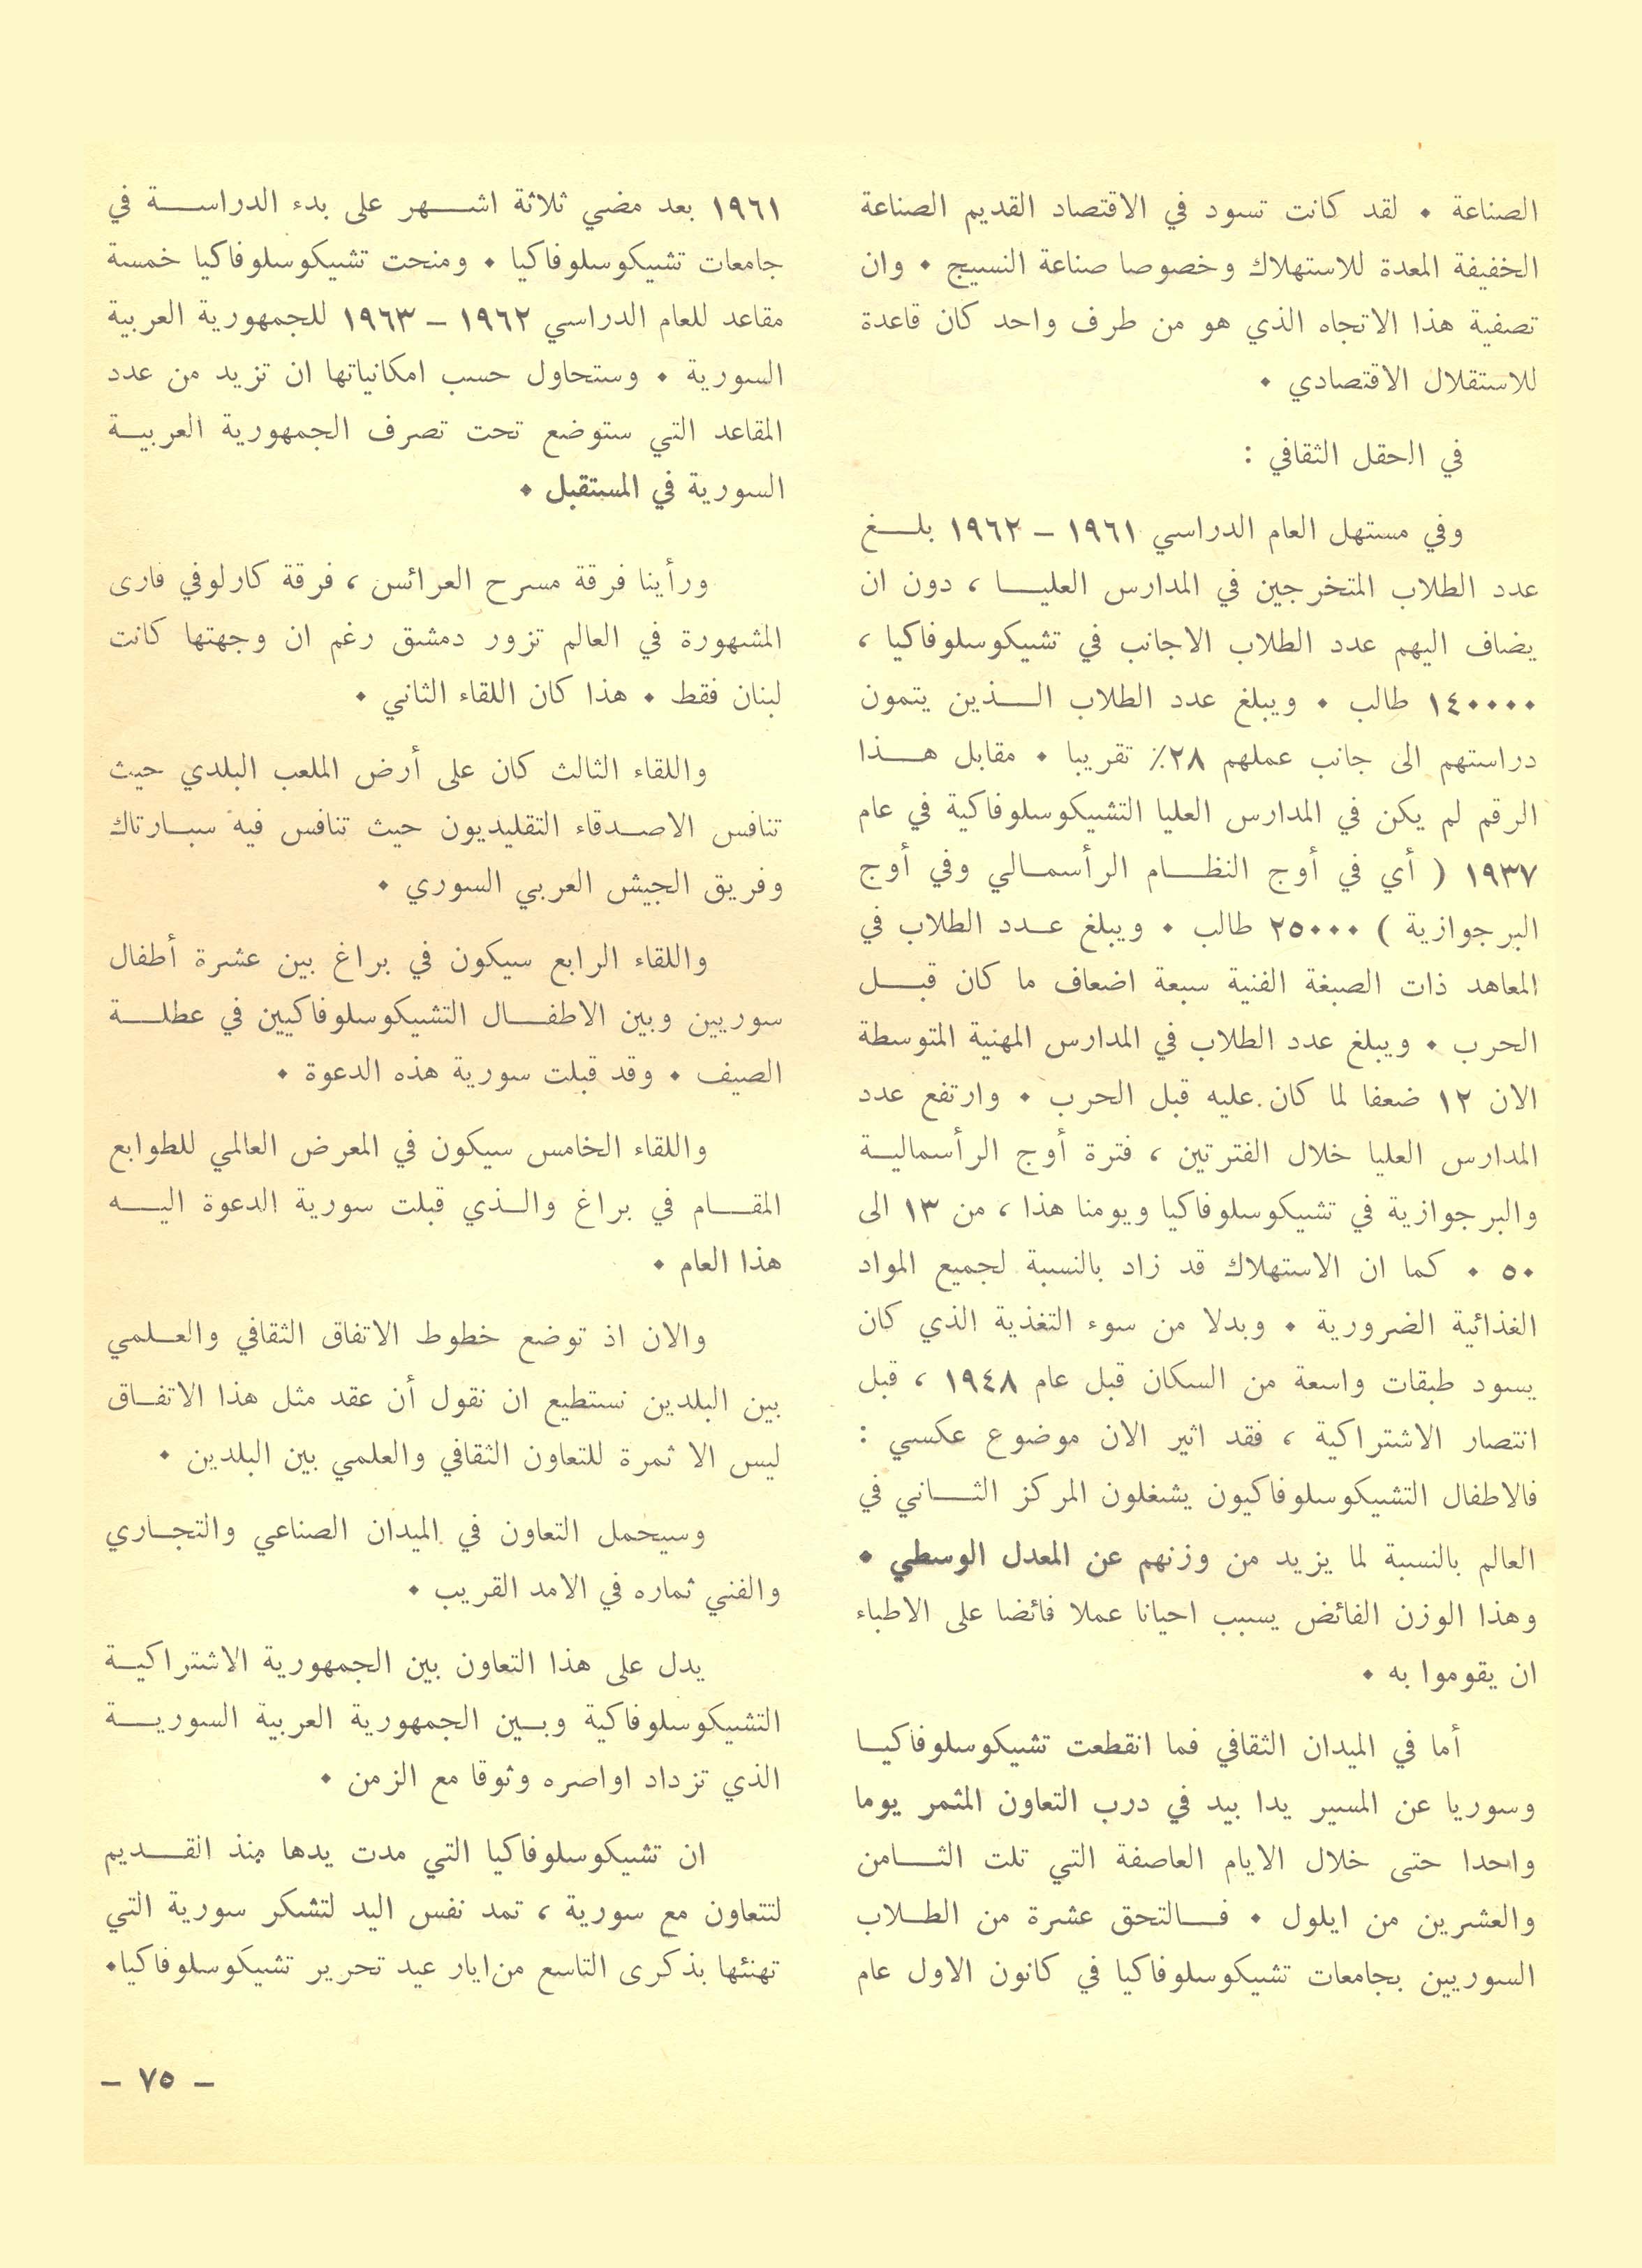 الصناعة . لقد كانت تسود في الاقتصاد القديم الصناعة
الخفيفة المعدة للاستهلاك وخصوصا صناعة النسيج . وان
تصفية هذا الاتجاه الذي هو من طرف واحد كان قاعدة
للاستقلال الاقتصادي .
في الحقل الثقافي :
وفي مستهل العام الدراسي ١٩٦١ – ١٩٦٢ بلغ
عدد الطلاب المتخرجين في المدارس العليا ، دون ان
يضاف اليهم عدد الطلاب الاجانب في تشيكوسلوفاكيا ،
١٤٠٠٠٠ طالب . ويبلغ عدد الطلاب الذين يتمون
دراستهم الى جانب عملهم ٢٨٪ تقريبا . مقابل هذا
الرقم لم يكن في المدارس العليا التشيكوسلوفاكية في عام
١٩٣٧ ( أي في أوج النظام الرأسمالي وفي أوج
البرجوازية ) ٢٥٠٠٠ طالب . ويبلغ عدد الطلاب في
المعاهد ذات الصبغة الفنية سبعة اضعاف ما كان قبل
الحرب . ويبلغ عدد الطلاب في المدارس المهنية المتوسطة
الان ١٢ ضعفا لما كان عليه قبل الحرب . وارتفع عدد
المدارس العليا خلال الفترتين ، فترة أوج الرأسمالية
والبرجوازية في تشيكوسلوفاكيا ويومنا هذا ، من ١٣ الى
٥٠ . كما ان الاستهلاك قد زاد بالنسبة لجميع المواد
الغذائية الضرورية . وبدلا من سوء التغذية الذي كان
يسود طبقات واسعة من السكان قبل عام ١٩٤٨ ، قبل
انتصار الاشتراكية ، فقد اثير الان موضوع عكسي :
فالاطفال التشيكوسلوفاكيون يشغلون المركز الثاني في
العالم بالنسبة لما يزيد من وزنهم عن المعدل الوسطي .
وهذا الوزن الفائض يسبب احيانا عملا فائضا على الاطباء
ان يقوموا به .
أما في الميدان الثقافي فما انقطعت تشيكوسلوفاكيا
وسوريا عن المسير يدا بيد في درب التعاون المثمر يوما
واحدا حتى خلال الايام العاصفة التي تلت الثامن
والعشرين من ايلول . فالتحق عشرة من الطلاب
السوريين بجامعات تشيكوسلوفاكيا في كانون الاول عام
١٩٦١ بعد مضي ثلاثة اشهر على بدء الدراسة في
جامعات تشيكوسلوفاكيا . ومنحت تشيكوسلوفاكيا خمسة
مقاعد للعام الدراسي ١٩٦٢ – ١٩٦٣ للجمهورية العربية
السورية . وستحاول حسب امكانياتها ان تزيد من عدد
المقاعد التي ستوضع تحت تصرف الجمهورية العربية
السورية في المستقبل .
ورأينا فرقة مسرح العرائس ، فرقة كارلوفي فارى
المشهورة في العالم تزور دمشق رغم ان وجهتها كانت
لبنان فقط . هذا كان اللقاء الثاني .
واللقاء الثالث كان على أرض الملعب البلدي حيث
تنافس الاصدقاء التقليديون حيث تنافس فيه سبارتاك
وفريق الجيش العربي السوري .
واللقاء الرابع سيكون في براغ بين عشرة أطفال
سوريين وبين الاطفال التشيكوسلوفاكيين في عطلة
الصيف . وقد قبلت سورية هذه الدعوة .
واللقاء الخامس سيكون في المعرض العالمي للطوابع
المقام في براغ والذي قبلت سورية الدعوة اليه
هذا العام .
والان اذ توضع خطوط الاتفاق الثقافي والعلمي
بين البلدين نستطيع ان نقول أن عقد مثل هذا الاتفاق
ليس الا ثمرة للتعاون الثقافي والعلمي بين البلدين .
وسيحمل التعاون في الميدان الصناعي والتجاري
والفني ثماره في الامد القريب .
يدل على هذا التعاون بين الجمهورية الاشتراكية
التشيكوسلوفاكية وبين الجمهورية العربية السورية
الذي تزداد اواصره وثوقا مع الزمن .
ان تشيكوسلوفاكيا التي مدت يدها منذ القديم
لتتعاون مع سورية ، تمد نفس اليد لتشكر سورية التي
تهنئها بذكرى التاسع من ايار عيد تحرير تشيكوسلوفاكيا.
– ٧٥ –